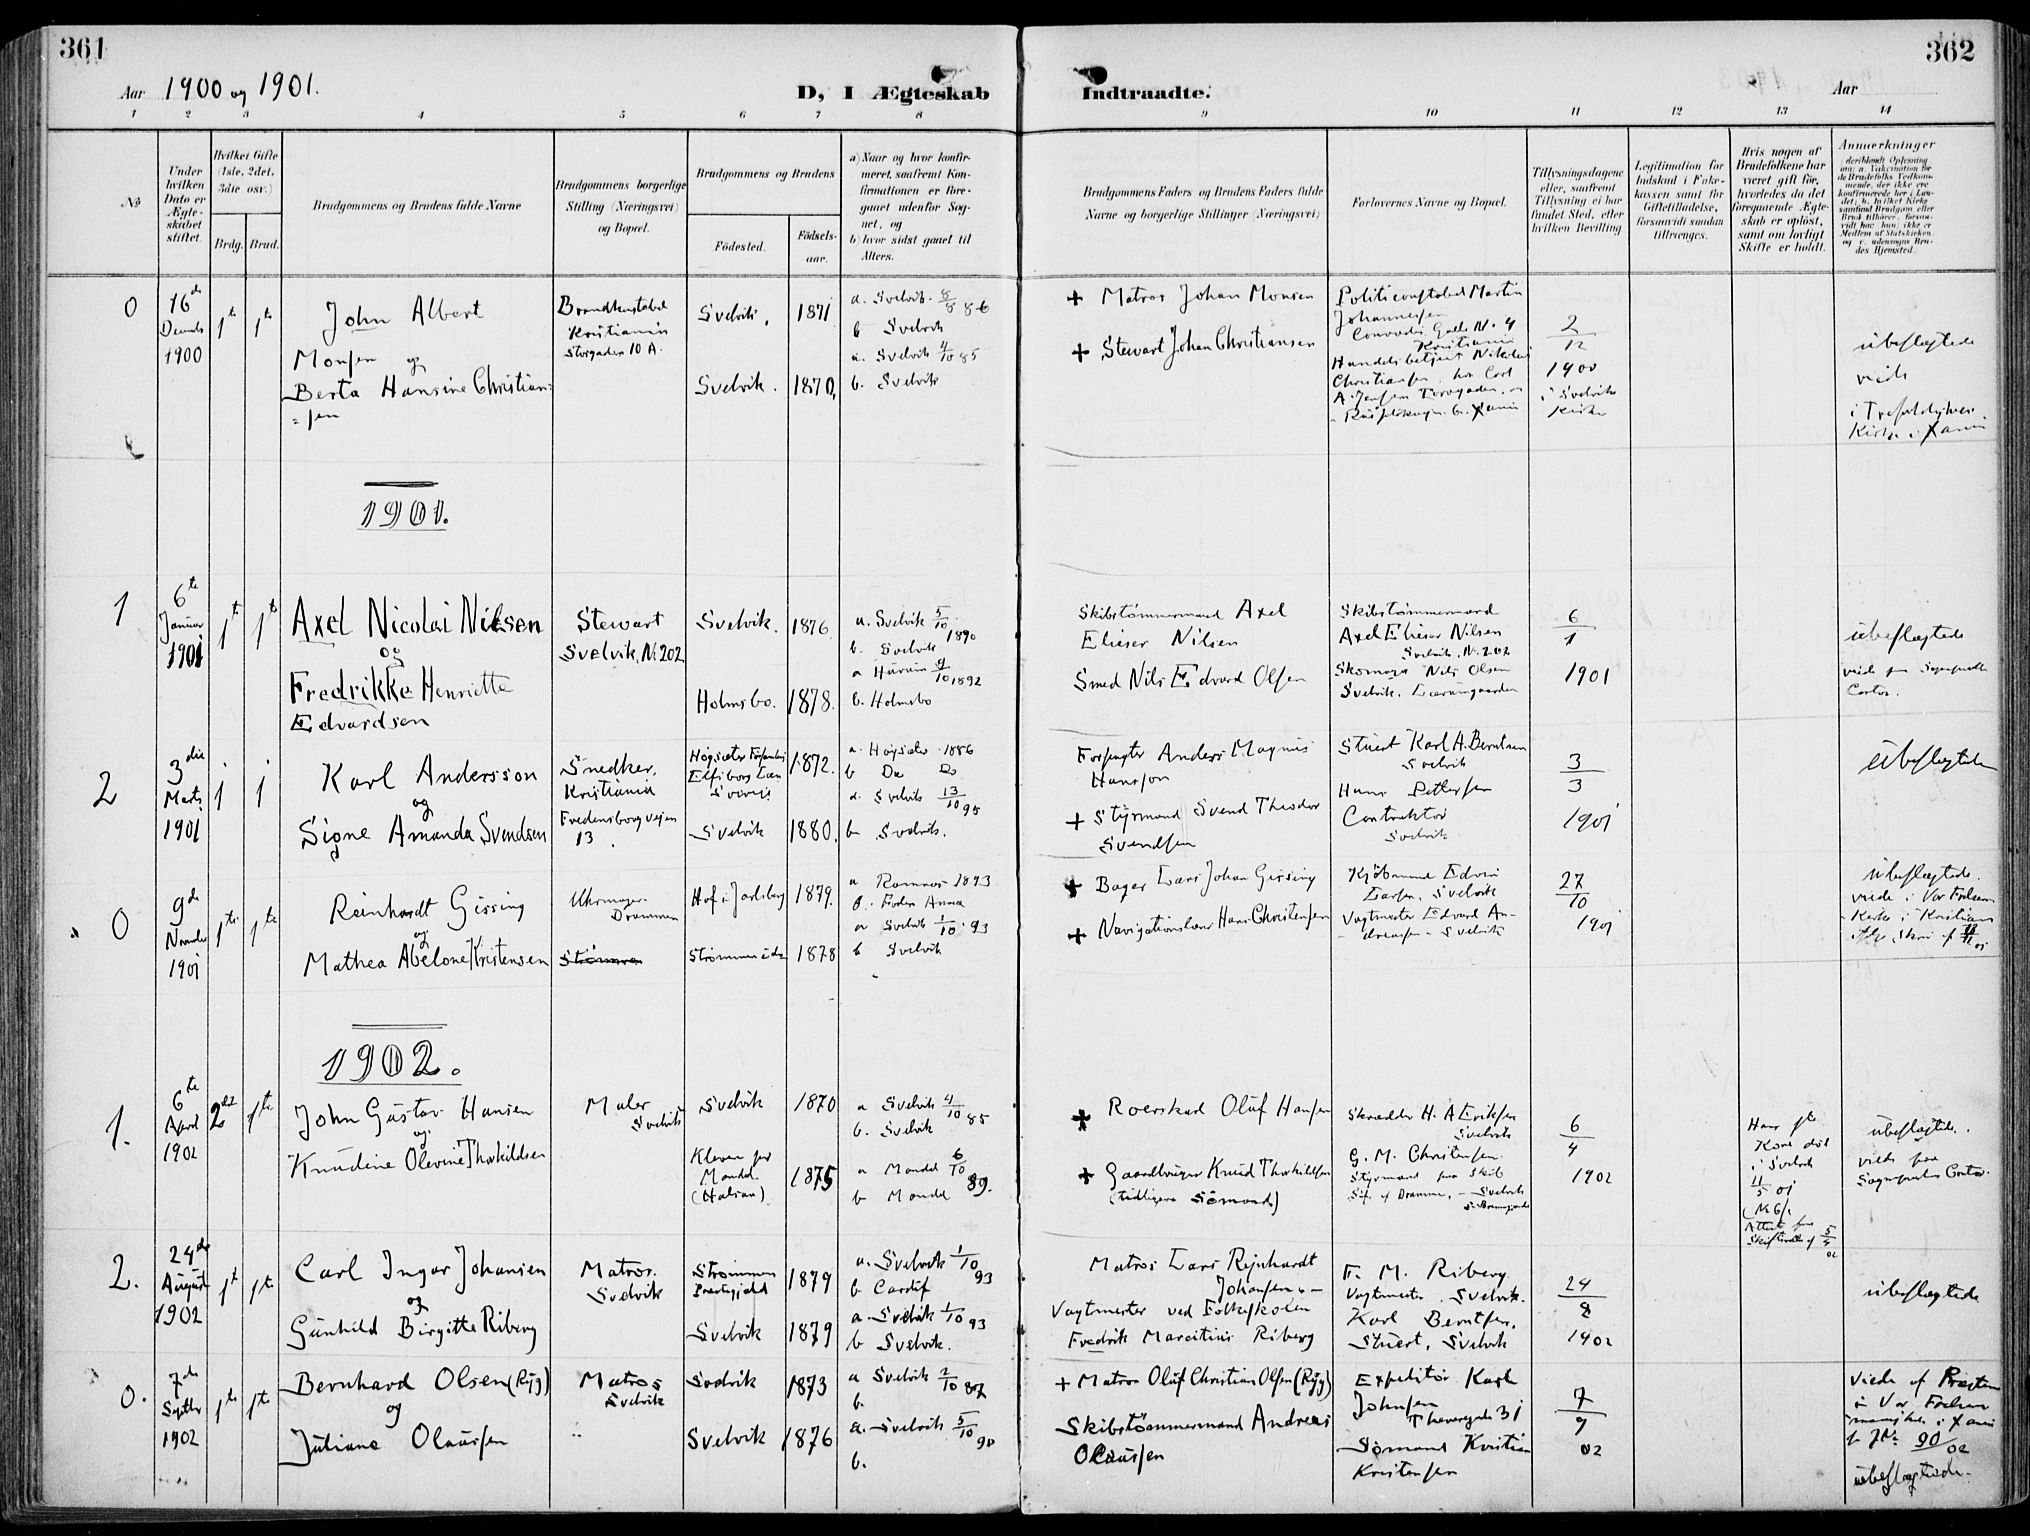 361
Aar 1900 og 1901.
D, I Ægteskab
Indtraadte.
362
Aar
1 2 3 4 5 6 7 8 9 10 11 12 13 14
No
Under hvilken Dato er Ægteskabet stiftet.
Hvilket Gifte (1ste, 2det, 3die osv.)
Brdg. Brud.
Brudgommens og Brudens fulde Navne
Brudgommens borgerlige Stilling (Næringsvei) og Bopæl.
Brudgommens og Brudens
Fødested.
Fødselsaar.
a) Naar og hvor konfirmeret, saafremt Konfirmationen er foregaaet udenfor Sognet, og
b) hvor sidst gaaet til Alters.
Brudgommens Faders og Brudens Faders fulde Navne og borgerlige Stillinger (Næringsvei)
Forlovernes Navne og Bopæl.
Tillysningsdagene eller, saafremt Tillysning ei har fundet Sted, efter hvilken Bevilling
Legitimation for Indskud i Enkekassen samt for Giftetilladelse, forsaavidt saadan tiltrænges.
Hvis nogen af Brudefolkene har været gift før, hvorledes da det foregaaende Ægteskab er opløst, samt om lovligt Skifte er holdt.
Anmerkninger
0
16de
Decemb
1900
1ste 1ste
John Albert
Monsen og
Berta Hansine Christian=
=sen
Brandkonstabel
Kristiania
Storgaden 10 A.
Svelvik. 1871
Svelvik. 1870
a. Svelvik 8/8 86
b Svelvik
a. Svelvik 4/10 85
b. Svelvik
+ Matros Johan Monsen
+ Stewart Johan Christiansen
Politikonstabel Martin
Johannesen
Kristiania
Handelsbetjent Nikolai
Christiansen hos Carl
2/12
1900
i Svelvik
Kirke
ubeslægtede
viede
i Trefoldigheds
Kirke i Xania
1901.
1
6te
Januar
1901
1ste 1ste
Axel Nicolai Nilsen
og
Fredrikke Henriette
Edvardsen
Stewart
Svelvik, N. 202
Svelvik. 1876
Holmsbo. 1878.
a. Svelvik 5/10 1890
b. Svelvik
a Hurum 9/10 1892
b. Holmsbo
Skibstømmermand Axel
Elieser Nilsen
Smed Nils Edvard Olsen
Skibstømmermand
Axel Elieser Nilsen
Svelvik, N. 202
Skomager Nils Olsen
Svelvik.
6/1
1901
ubeslægtede
viede paa Sognepræstens
Contor.
2
3die
Marts
1901
1 1
Karl Andersson
og
Signe Amanda Svendsen
Snedker,
Kristiania
Fredensborgveien
13.
Høgsæter Församling
Elfsborg Län
Sverige 1872.
Svelvik 1880.
a. Høgsæter 1886
b Do Do
a. Svelvik 13/10 95
b Svelvik.
Forpagter Anders Magnus
Hansson
+ Styrmand Svend Theodor
Svendsen
Stuert Karl A. Berntsen
Svelvik
Hans Pettersen
Contraktør
Svelvik
3/3
1901
ubeslægtede
0
9de
Novembe
1901
1ste 1ste
Reinhardt Gissing
og
Mathea Abelone Kristensen
Uhrmager.
Drammen
Strømmen
Hof i Jarlsberg 1879.
Strømmen 1878
a Ramnes 1893
a Svelvik 1/10 93
b Svelvik
+ Bager Lars Johan Gissing
+ Navigationslærer Hans Christensen
Kjøbmand Edvin
Larsen, Svelvik
Vagtmester Edvard An-
dreasen - Svelvik
27/10
1901
ubeslægtede.
viede i Vor Frelsers
Kirke i Kristiania
1902.
1.
6te
April
1902
2det 1ste
John Gustav Hansen
og
Knudine Olevine Thorkildsen
Maler
Svelvik
Svelvik 1870
Kleven per
Mandal
(Halsaa) 1875
a Svelvik 4/10 85
b. Svelvik
a Mandal 6/10 89.
b Mandal
+ Roerskarl Oluf Hansen
+ Gaardbruger Knud Thorkildsen
(tidligere Sømand)
Skrædder H. A Eriksen
Svelvik
G. M. Christensen
Styrmand paa Skib
6/4
1902
Hans første
Kone død
i Svelvik
11/5 01
Attest fra
Skifteretten af 5/4 02
ubeslægtede.
viede paa
Sognepræstens Contor.
2.
24de
August
1902
1ste 1ste
Carl Ingvar Johansen
og
Gunhild Birgitte Riberg
Matros.
Svelvik
Strømmen
Præstegjeld 1879
Svelvik 1879
a. Svelvik 1/10 93
b Cardif
a. Svelvik 1/10 93
b Svelvik.
Matros Lars Reinhardt
Johansen
Vagtmester ved Folkeskolen
Fredrik Marcitius Riberg
F. M. Riberg
Vagtmester, Svelvik.
Karl Berntsen,
Stuert, Svelvik
24/8
1902
ubeslægtede
0.
7de
Septbr
1902
1ste 1ste
Bernhard Olsen (Ryg)
og
Juliane Olaussen
Matros
Svelvik
Svelvik 1873
Svelvik 1876
a Svelvik 2/10 87
b.
a. Svelvik 5/10 90
b.
+ Matros Oluf Christian Olsen (Ryg)
Skibstømmermand Andreas
Olaussen
Expeditør Karl
Johnsen
Sømand Kristian
Kristensen
7/9
02
Viede af Præsten
i Vor Frelser
90/02
ubeslægtede.